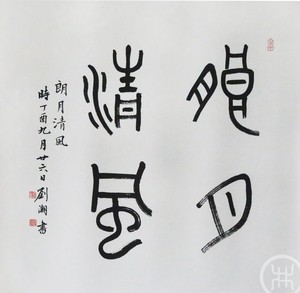 朗月
清风
朗月清风
時丁酉九月廿六日劉瀚書